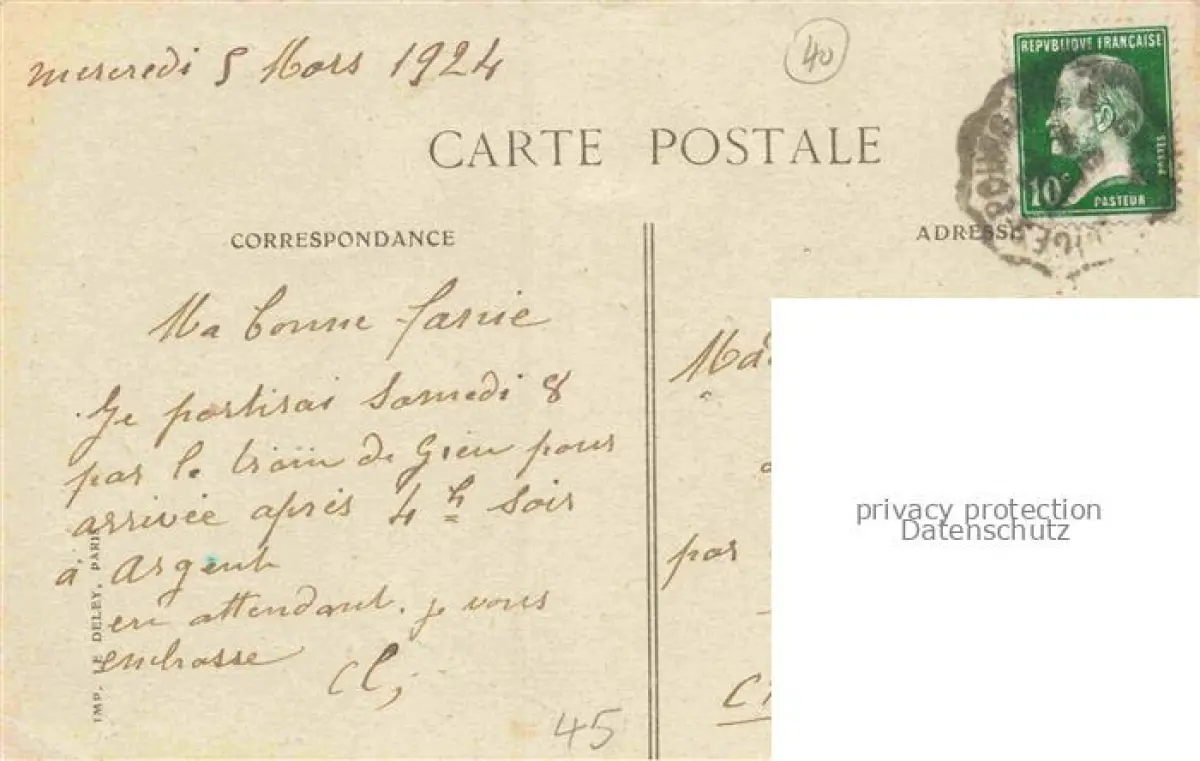 mercredi 5 Mars 1924
40
REPVBLIQUE FRANÇAISE
10c
POSTES
PASTEUR
CARTE POSTALE
CORRESPONDANCE
ADRESSE
Ma bonne fanie
Je partirai Samedi 8
par le train de Gien pour
arrivée après 4h soir
à Argent
en attendant. je vous
embrasse
Cl,
45
IMP. LE DELEY, PARIS
Ma
par
privacy protection
Datenschutz